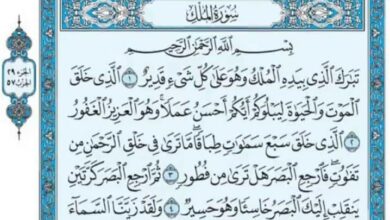 سُورَةُ المُلْكِ
بِسْمِ اللَّهِ الرَّحْمَٰنِ الرَّحِيمِ
تَبَٰرَكَ ٱلَّذِى بِيَدِهِ ٱلْمُلْكُ وَهُوَ عَلَىٰ كُلِّ شَىْءٍ قَدِيرٌ ١ ٱلَّذِى خَلَقَ
ٱلْمَوْتَ وَٱلْحَيَوٰةَ لِيَبْلُوَكُمْ أَيُّكُمْ أَحْسَنُ عَمَلًا وَهُوَ ٱلْعَزِيزُ ٱلْغَفُورُ
٢ ٱلَّذِى خَلَقَ سَبْعَ سَمَٰوَٰتٍ طِبَاقًا مَّا تَرَىٰ فِى خَلْقِ ٱلرَّحْمَٰنِ مِن
تَفَٰوُتٍ فَٱرْجِعِ ٱلْبَصَرَ هَلْ تَرَىٰ مِن فُطُورٍ ٣ ثُمَّ ٱرْجِعِ ٱلْبَصَرَ كَرَّتَيْنِ
يَنقَلِبْ إِلَيْكَ ٱلْبَصَرُ خَاسِئًا وَهُوَ حَسِيرٌ ٤ وَلَقَدْ زَيَّنَّا ٱلسَّمَآءَ
الجزء ٢٩
الحزب ٥٧